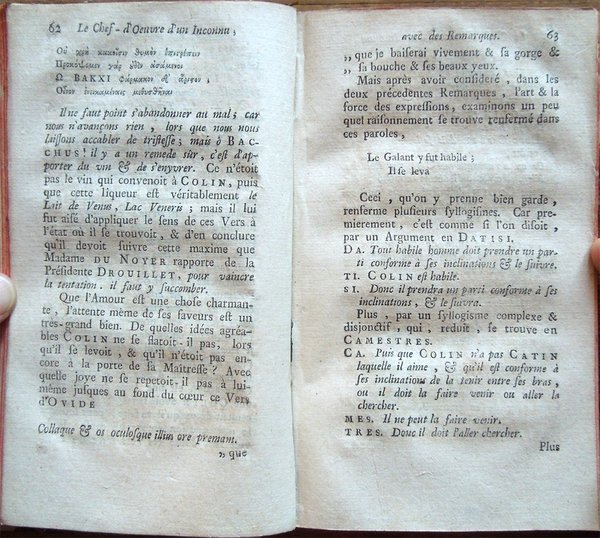 62 Le Chef-d'Oeuvre d'un Inconnu,
Οὐ χρὴ κακοῖσιν θυμὸν ἐπιτρέπην
Προκόψομεν γὰρ οὐδὲν ἀσάμενοι
Ω ΒΑΚΧΙ φάρμακον δ' ἄριστον,
Οἶνον ἐνικαμένοις μεθυσθῆναι
Il ne faut point s'abandonner au mal; car
nous n'avançons rien, lors que nous nous
laissons accabler de tristesse; mais ô BAC-
CHUS! il y a un remede sûr, c'est d'ap-
porter du vin & de s'enyvrer. Ce n'étoit
pas le vin qui convenoit à COLIN, puis
que cette liqueur est véritablement le
Lait de Venus, Lac Veneris; mais il lui
fut aisé d'appliquer le sens de ces Vers à
l'état où il se trouvoit, & d'en conclure
qu'il devoit suivre cette maxime que
Madame DU NOYER rapporte de la
Présidente DROUILLET, pour vaincre
la tentation. il faut y succomber.
Que l'Amour est une chose charman-
te, l'attente même de ses faveurs est un
tres-grand bien. De quelles idées agréa-
bles COLIN ne se flatoit-il pas, lors
qu'il se levoit, & qu'il n'étoit pas en-
core à la porte de sa Maitresse? Avec
quelle joye ne se repetoit-il pas à lui-
même jusques au fond du cœur ce Vers
d'OVIDE
Collaque & os oculosque illius ore premam.
„ que
avec des Remarques. 63
„ que je baiserai vivement & sa gorge &
„ sa bouche & ses beaux yeux.
Mais après avoir consideré, dans les
deux précedentes Remarques, l'art & la
force des expressions, examinons un peu
quel raisonnement se trouve renfermé dans
ces paroles,
Le Galant y fut habile;
Il se leva
Ceci, qu'on y prenne bien garde,
renferme plusieurs syllogismes. Car pre-
mierement, c'est comme si l'on disoit,
par un Argument en DATISI.
DA. Tout habile homme doit prendre un par-
ti conforme à ses inclinations & le suivre.
TI. COLIN est habile.
SI. Donc il prendra un parti conforme à ses
inclinations, & le suivra.
Plus, par un syllogisme complexe &
disjonctif, qui, reduit, se trouve en
CAMESTRES.
CA. Puis que COLIN n'a pas CATIN
laquelle il aime, & qu'il est conforme à
ses inclinations de la tenir entre ses bras,
ou il doit la faire venir ou aller la
chercher.
MES. Il ne peut la faire venir.
TRES. Donc il doit l'aller chercher.
Plus